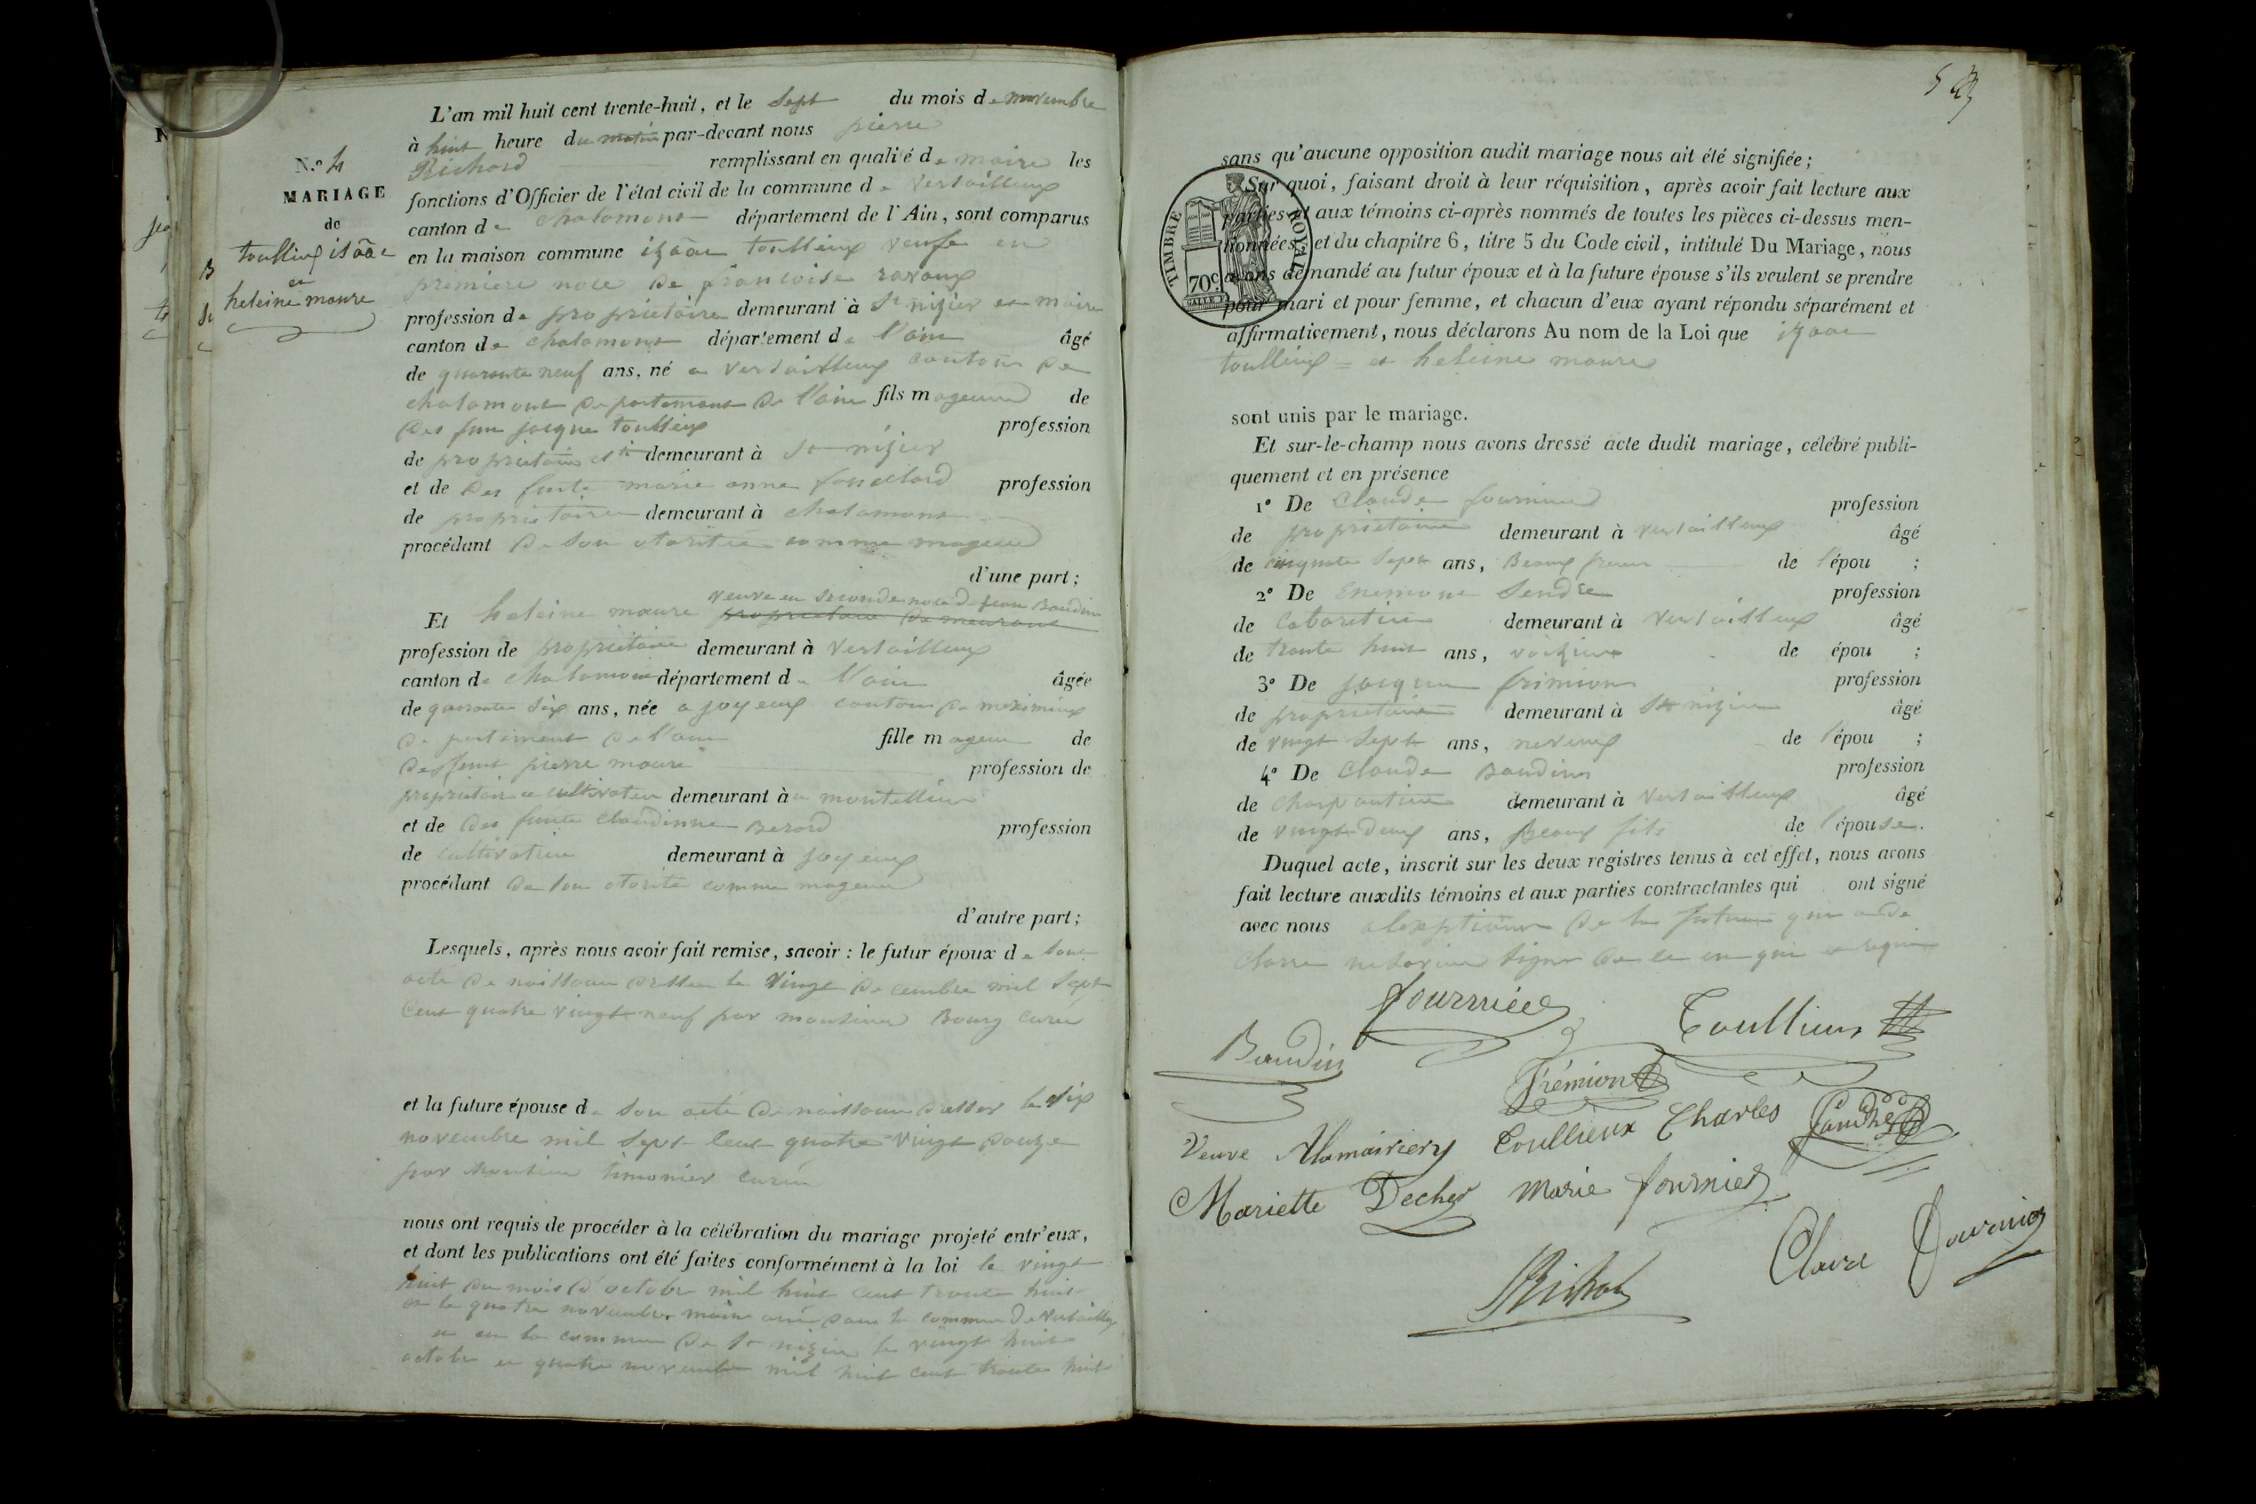 N.º 4
MARIAGE
de
toullieux isaac
et
heleine moure
L'an mil huit cent trente-huit, et le sept du mois de novembre
à huit heure du matin par-devant nous pierre
Richard remplissant en qualité de maire les
fonctions d'Officier de l'état civil de la commune de versailleux
canton de chalamont département de l'Ain, sont comparus
en la maison commune izaac toullieux veufe en
premiere noce de francoise ravoux
profession de proprietaire demeurant à st nizier et maire
canton de chalamont département de l'ain âgé
de quarante neuf ans, né a versailleux canton de
chalamont departement de l'ain fils mageur de
des fun jacque toullieux profession
de proprietaire demeurant à st nizier
et de des funte marie anne profession
de proprietaire demeurant à chalamont
procédant de son otoritee comme mageur
d'une part;
veuve en seconde noce de jean Baudin
Et heleine moure proprietaire demeurant
profession de proprietaire demeurant à versailleux
canton de chalamont département de l'ain âgée
de quarante six ans, née a joyeux canton de meximieux
departement de l'ain fille mageur de
des funt pierre moure profession de
proprietaire cultivateur demeurant à a montellier
et de des funte claudinne Berard profession
de cultivatrice demeurant à joyeux
procédant de son otorité comme mageur
d'autre part;
Lesquels, après nous avoir fait remise, savoir: le futur époux de son
acte de naissance dresser le vingt decembre mil sept
cent quatre vingt neuf par monsieur Bourg curer
et la future épouse de son acte de naissance dresser le dix
novembre mil sept cent quatre vingt douze
par monsieur timonier curer
nous ont requis de procéder à la célébration du mariage projeté entr'eux,
et dont les publications ont été faites conformément à la loi le vingt
huit du mois d'octobre mil huit cent trente huit
et le quatre novembre dans la commune de versailleux
et en la commune de st nizier le vingt huit
octobre et quatre novembre mil huit cent trente huit
sans qu'aucune opposition audit mariage nous ait été signifiée;
Sur quoi, faisant droit à leur réquisition, après avoir fait lecture aux
parties et aux témoins ci-après nommés de toutes les pièces ci-dessus men-
tionnées, et du chapitre 6, titre 5 du Code civil, intitulé Du Mariage, nous
avons demandé au futur époux et à la future épouse s'ils veulent se prendre
pour mari et pour femme, et chacun d'eux ayant répondu séparément et
affirmativement, nous déclarons Au nom de la Loi que izaac
toullieux = et heleine moure
TIMBRE ROYAL
70c.
sont unis par le mariage.
Et sur-le-champ nous avons dressé acte dudit mariage, célébré publi-
quement et en présence
1º De Claude fournier profession
de proprietaire demeurant à versailleux âgé
de cinquate sept ans, Beaux freres de l'épou ;
2º De Enemone Sendre profession
de cabaretier demeurant à versailleux âgé
de trante huit ans, voizien de épou ;
3º De jacque frimion profession
de proprietaire demeurant à st nizier âgé
de vingt sept ans, neveux de l'épou ;
4º De Claude Baudin profession
de charpantier demeurant à versailleux âgé
de vingt-deux ans, Beaux fils de l'épouse.
Duquel acte, inscrit sur les deux registres tenus à cet effet, nous avons
fait lecture auxdits témoins et aux parties contractantes qui ont signé
avec nous alexption de la future qui a de
clarer ne savoir signer de ce en qui et requi
fournier
Toullieux
Baudin
Frémion
Veuve Alamairiery Toullieux Charles Sandre
Mariette Decher Marie fournier
Clara fournier
Richard